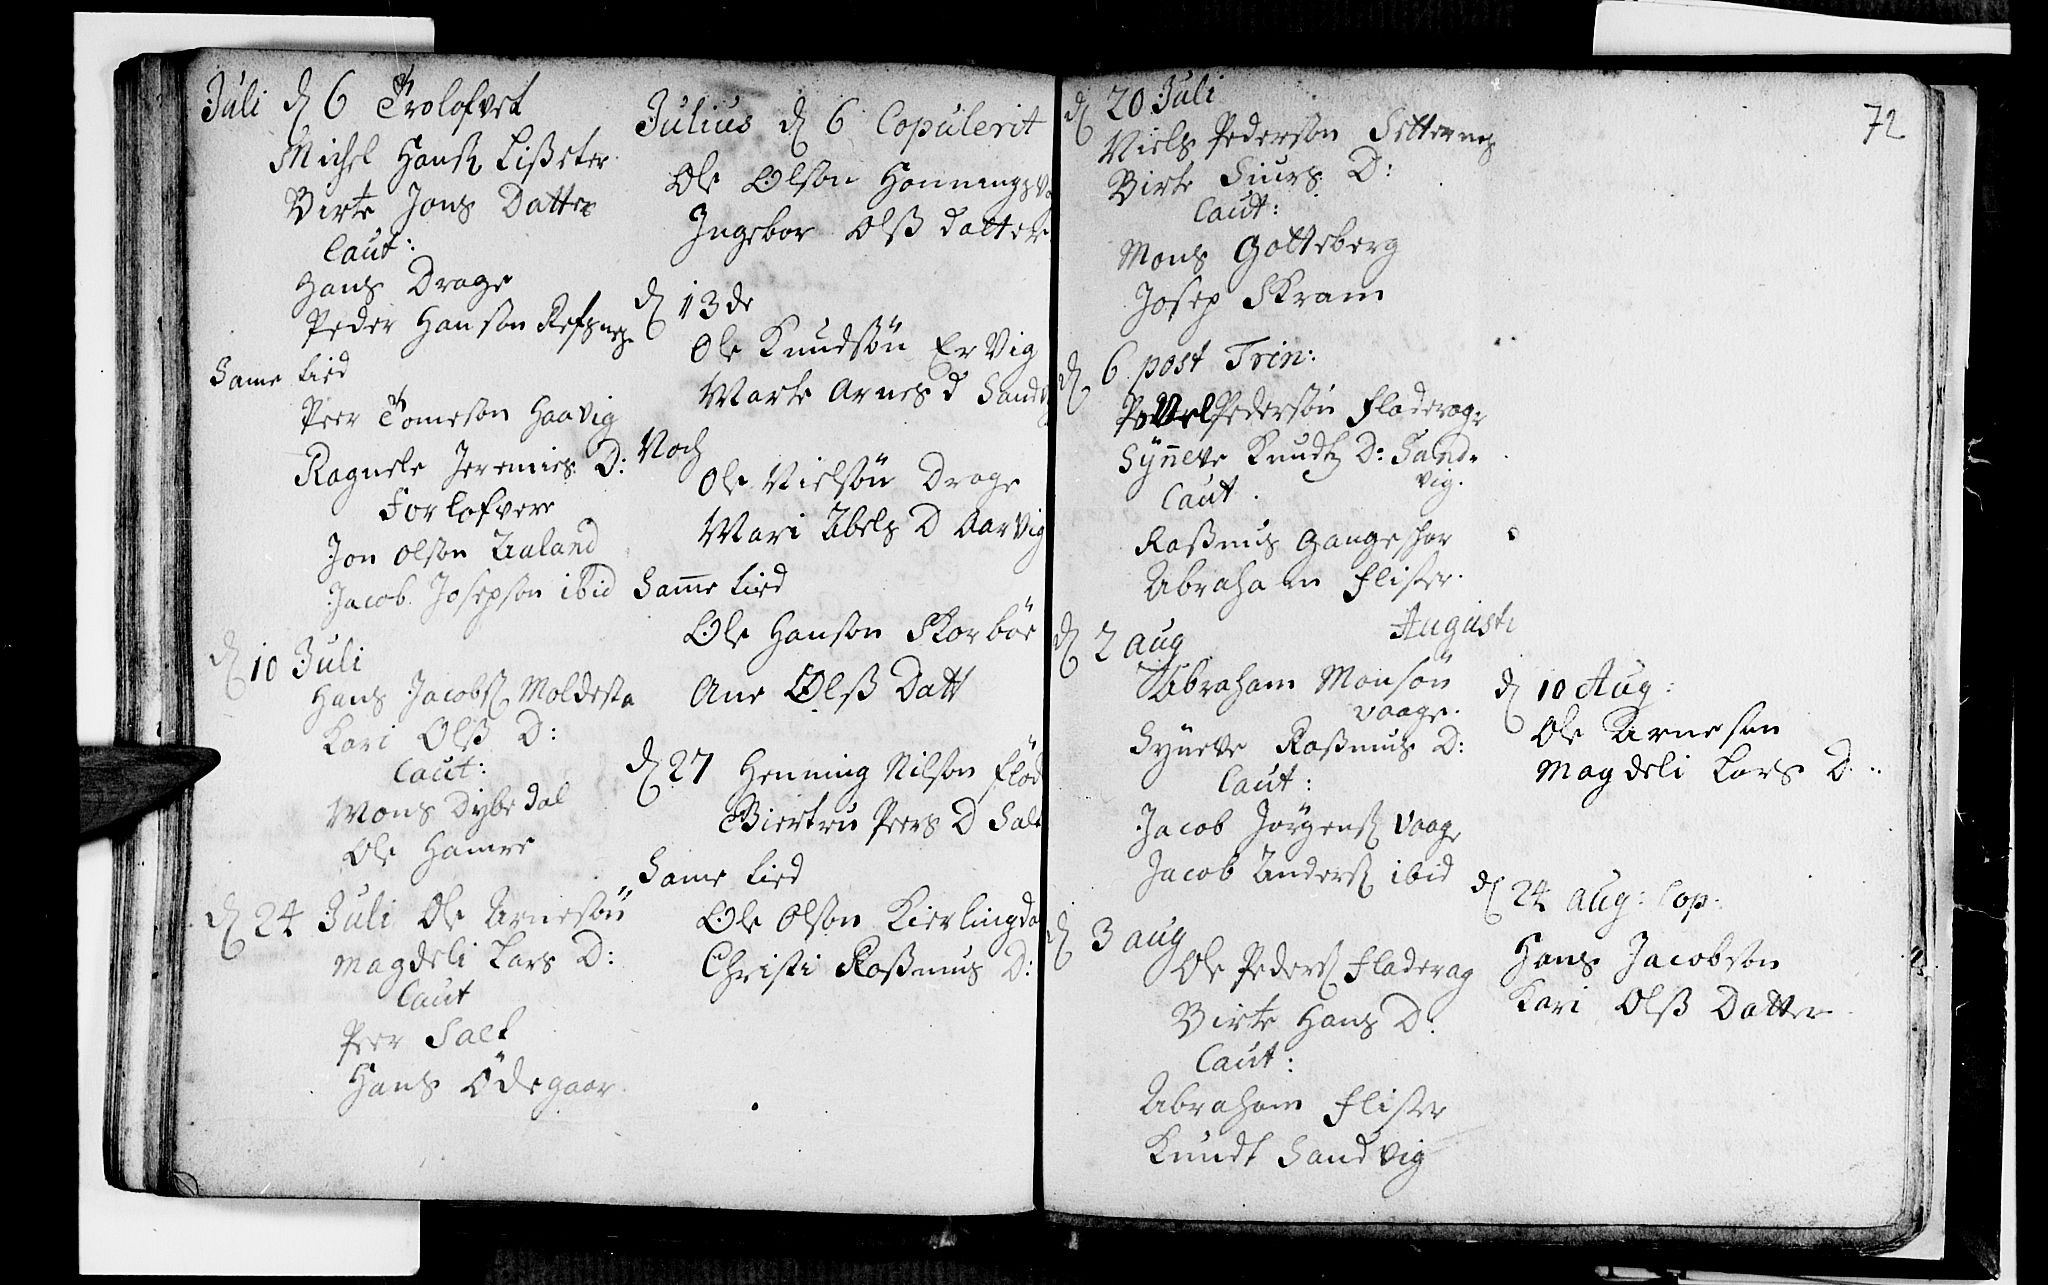 Juli d 6 Trolofvet
Michel Hansß Lißeter
Birte Jons Datter
Caut:
Hans Drage
Peder Hanson Refsnes
Same tied
Peer Tomeson Haavig
Ragnele Jeremies D:
Forlofvere
Jon Olson Aaland
Jacob Josepson ibid
d 10 Juli
Hans Jacobsß Moldesta
Kari Olß D:
Caut:
Mons Dybedal
Ole Hamre
d 24 Juli Ole Arnesön
Magdeli Lars D:
Caut
Peer Salt
Hans Ödegaar
Julius d 6 Copulerit
Ole Olson Honningsv
Ingebor Olß datter
d 13de
Ole Knudsön ErVig
Marte Arnes d Sand
Noch
Ole Nielsön Drage
Mari Abels D AarVig
Same tied
Ole Hanson Skorböe
Ane Olß Datt
d 27 Henning Nilson Flöd
Giertru Peers D Salt
Same tied
Ole Olson Kierlingda
Christi Raßmus D:
72
d 20 Juli
Niels Pederson Setternes
Birte Siurs D:
Caut:
Mons Gotteberg
Josep Skram
d 6 post Trin:
Pederson Fladerag
Synneve Knudtz D: Sand-
vig.
Caut.
Raßmus Gangeskar
Abraham Flister.
Augusti
d 2 aug
Abraham Monsön
Vaage.
Syneve Raßmus D:
Caut:
Jacob Jörgensß Vaage
Jacob Andersß ibid
d 3 aug
Ole Pedersß Fladerag
Birte Hans D:
Caut:
Abraham Flister
Knudt Sandvig
d 10 Aug:
Ole Arneson
Magdeli Lars D:
d 24 aug: Cop.
Hans Jacobson
Kari Olß Datter